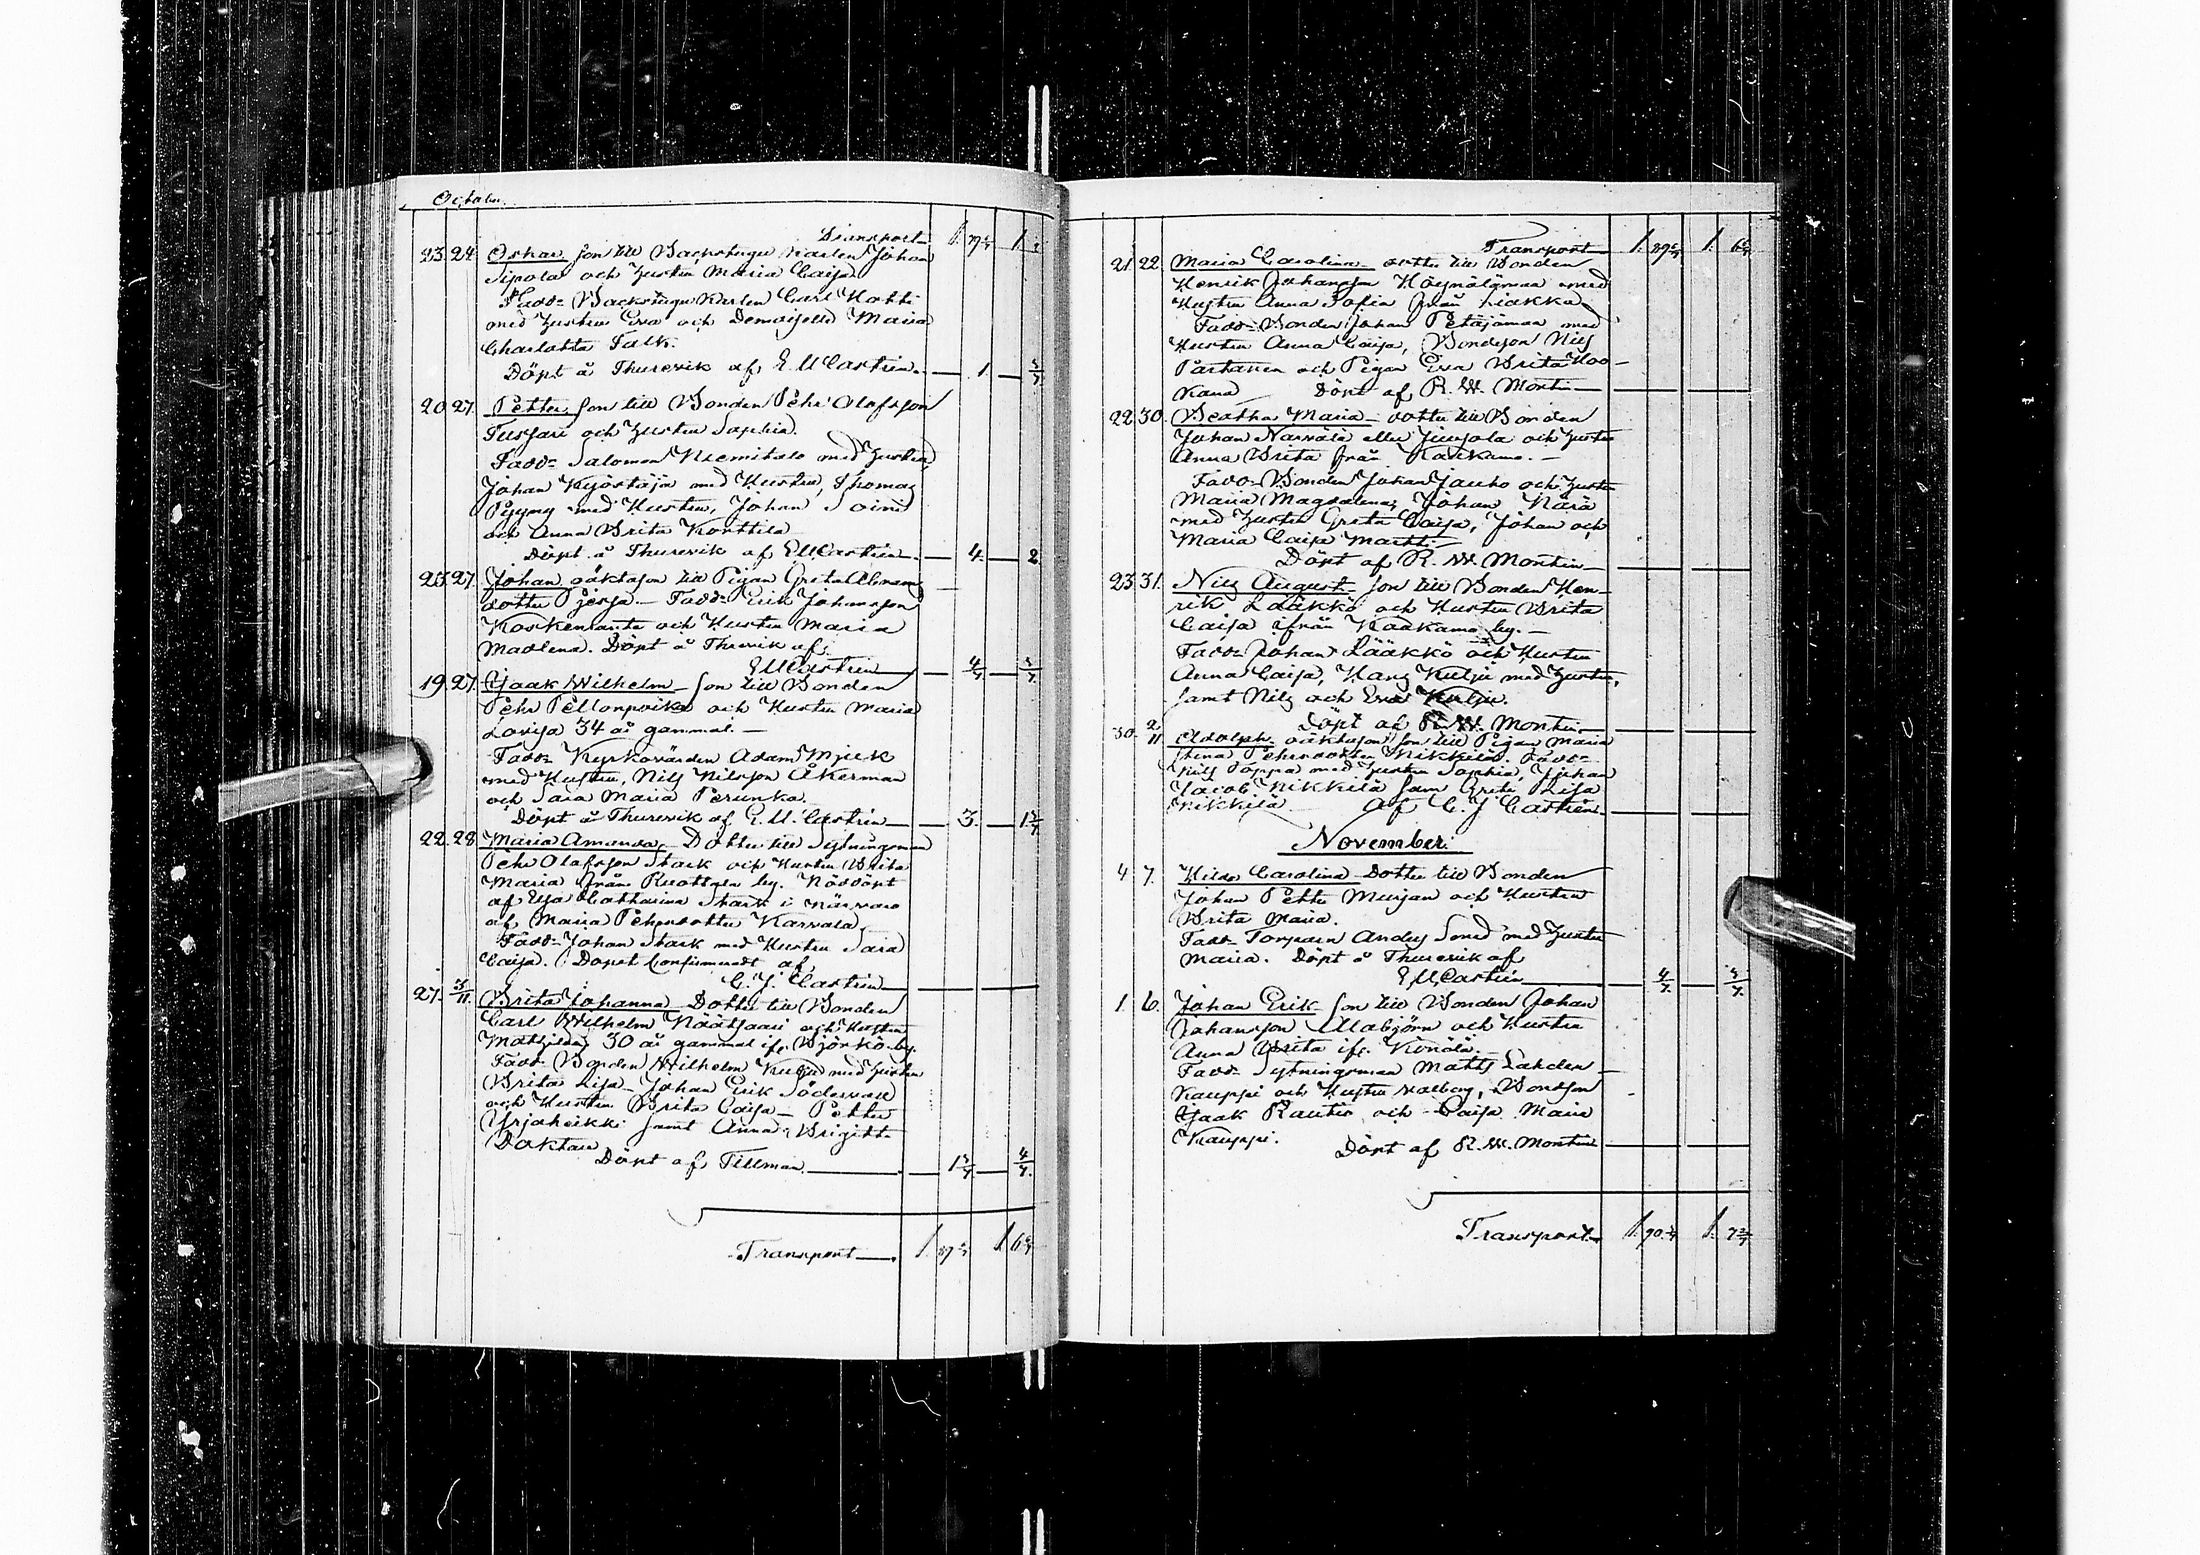 October.
Transport
23. 24. Oskar son till Backstugu Karlen Johan
Sipola och hustru Maria Caisa
Fadd= Backstugu Karlen Carl Hotti
med hustru Eva och Demoiselle Maria
Charlotta Falk.
Döpt å Thurevik af E M Castrén. 1
20 27. Petter son till Bonden Pehr Olofsson
och hustru Sophia.
Fadd= Salomon Niemitalo med hustru
Johan Kyöstäjä med Hustru, Thomas
med Hustru, Johan Soini
och Anna Brita Konttila
Döpt å Thurevik af E M Castrén. 4. 2
23 27. Johan oäkta son till Pigan Greta Abrams
dotter Fadd= Erik Johansson
Koskenranta och Hustru Maria
Madlena. Döpt å Thurevik af
E M Castrén 4/7
19. 27. Isaak Wilhelm son till Bonden
Pehr och Hustru Maria
Lovisa 34 år gammal. —
Fadd= Kyrkovärden Adam
med Hustru, Nils Nilsson Åkerman
och Sara Maria Perunka.
Döpt å Thurevik af E. M. Castrén 3.
22. 28 Maria Amanda Dotter till Sytningsman
Pehr Olofsson Stark och Hustru Brita
Maria från by. Nöddöpt
af Catharina Stark i närvaro
af Maria Pehrsdotter Karvala
Fadd= Johan Stark med Hustru Sara
Caisa. Dopet Confirmeradt af
C. J. Castrén
27. 3/11. Brita Johanna Dotter till Bonden
Carl Wilhelm Näätsaari och Hustru
Mathilda 30 år gammal ifr. Björkö by.
Fadd= Bonden Wilhelm med hustru
Brita Lisa — Johan Erik
och Hustru Brita Caisa — Petter
Yrjänheikki samt Anna Brigitta
Döpt af Tillman.
Transport
Transport
21. 22. Maria Carolina dotter till Bonden
Henrik Johansson med
Hustru Anna Sofia från Liakka
Fadd= Bonden Johan Petäjämaa med
Hustru Anna Caisa, Bondeson Nils
Partanen och Pigan Eva Brita Koo-
kana Döpt af R. W. Montin
22. 30. Beatha Maria dotter till Bonden
Johan eller och hustru
Anna Brita från Kaakamo. —
Fadd= Bonden Johan Jauho och hustru
Maria Magdalena, Johan Närä
med hustru Greta Caisa, Johan och
Maria Caisa Martti
Döpt af R. W. Montin
23 31. Nils August son till Bonden Hen-
rik Lääkkö och Hustru Brita
Caisa ifrån Kaakamo by. —
Fadd= Johan Lääkkö och Hustru
Anna Caisa, Hans Kulju med hustru,
samt Nils och Eva Kulju.
Döpt af R. W. Montin
30. 2/11 Adolph oäkta son till Pigan Maria
Stina Pehrsdotter Nikkilä. Fadd=
Nils Poppa med hustru Sophia, Johan
Jacob Nikkilä samt Greta Lisa
Nikkilä af C. J. Castrén
November.
4 7. Hilda Carolina Dotter till Bonden
Johan Petter och Hustru
Brita Maria.
Fadd= Torparen Anders med hustru
Maria. Döpt å Thurevik af
E M Castrén 4/7.
1. 6. Johan Erik son till Bonden Johan
Johansson Mabjörn och Hustru
Anna Brita ifr. Könölä
Fadd= Sytningsman Matts Lahden
Kauppi och Hustru Valborg, Bondson
Isaak Rautio och Caisa Maria
Kauppi. Döpt af R. W. Montin
Transport